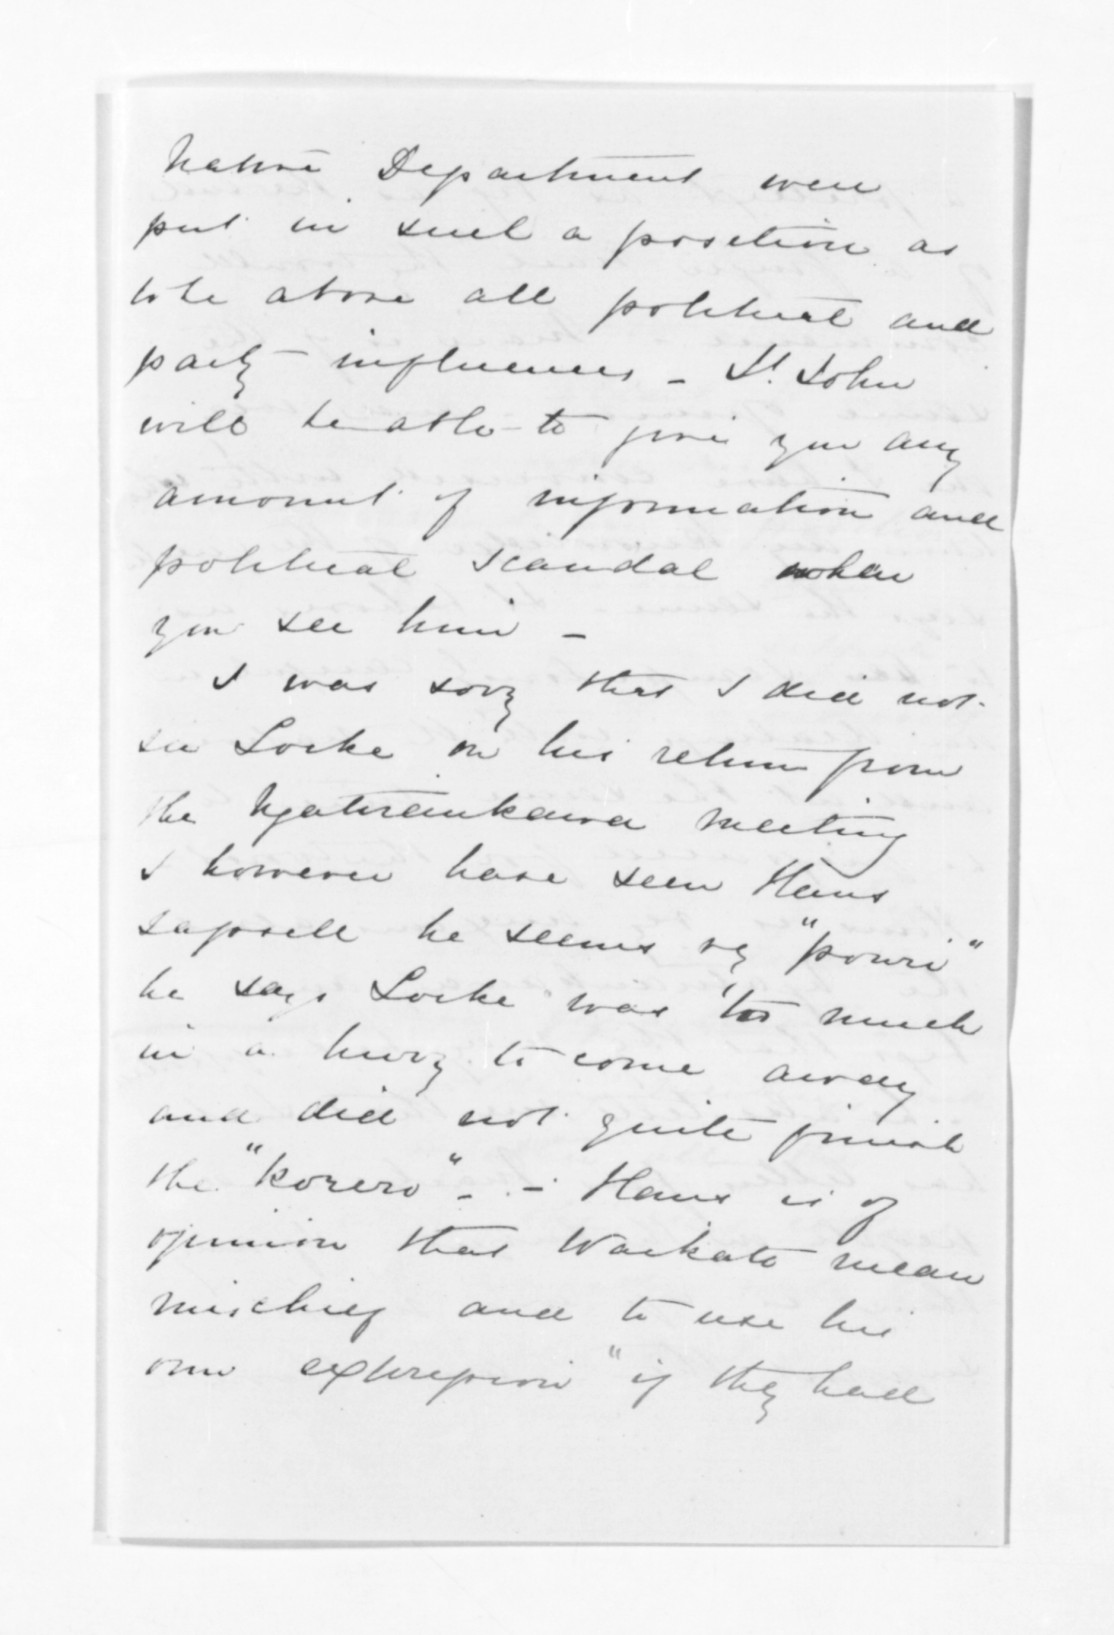 Native Department were
put in such a position as
to be above all political and
party influences - St. John
will be able to give you any
amount of information and
political scandal when
you see him -
I was sorry that I did not
see Locke on his return from
the Ngatiraukawa meeting
I however have seen Hans
Tapsell he seems vy "pouri"
he says Locke was too much
in a hurry to come away
and did not quite finish
the "korero" - - Hans is of
opinion that Waikato mean
mischief and to use his
own expression "if they had